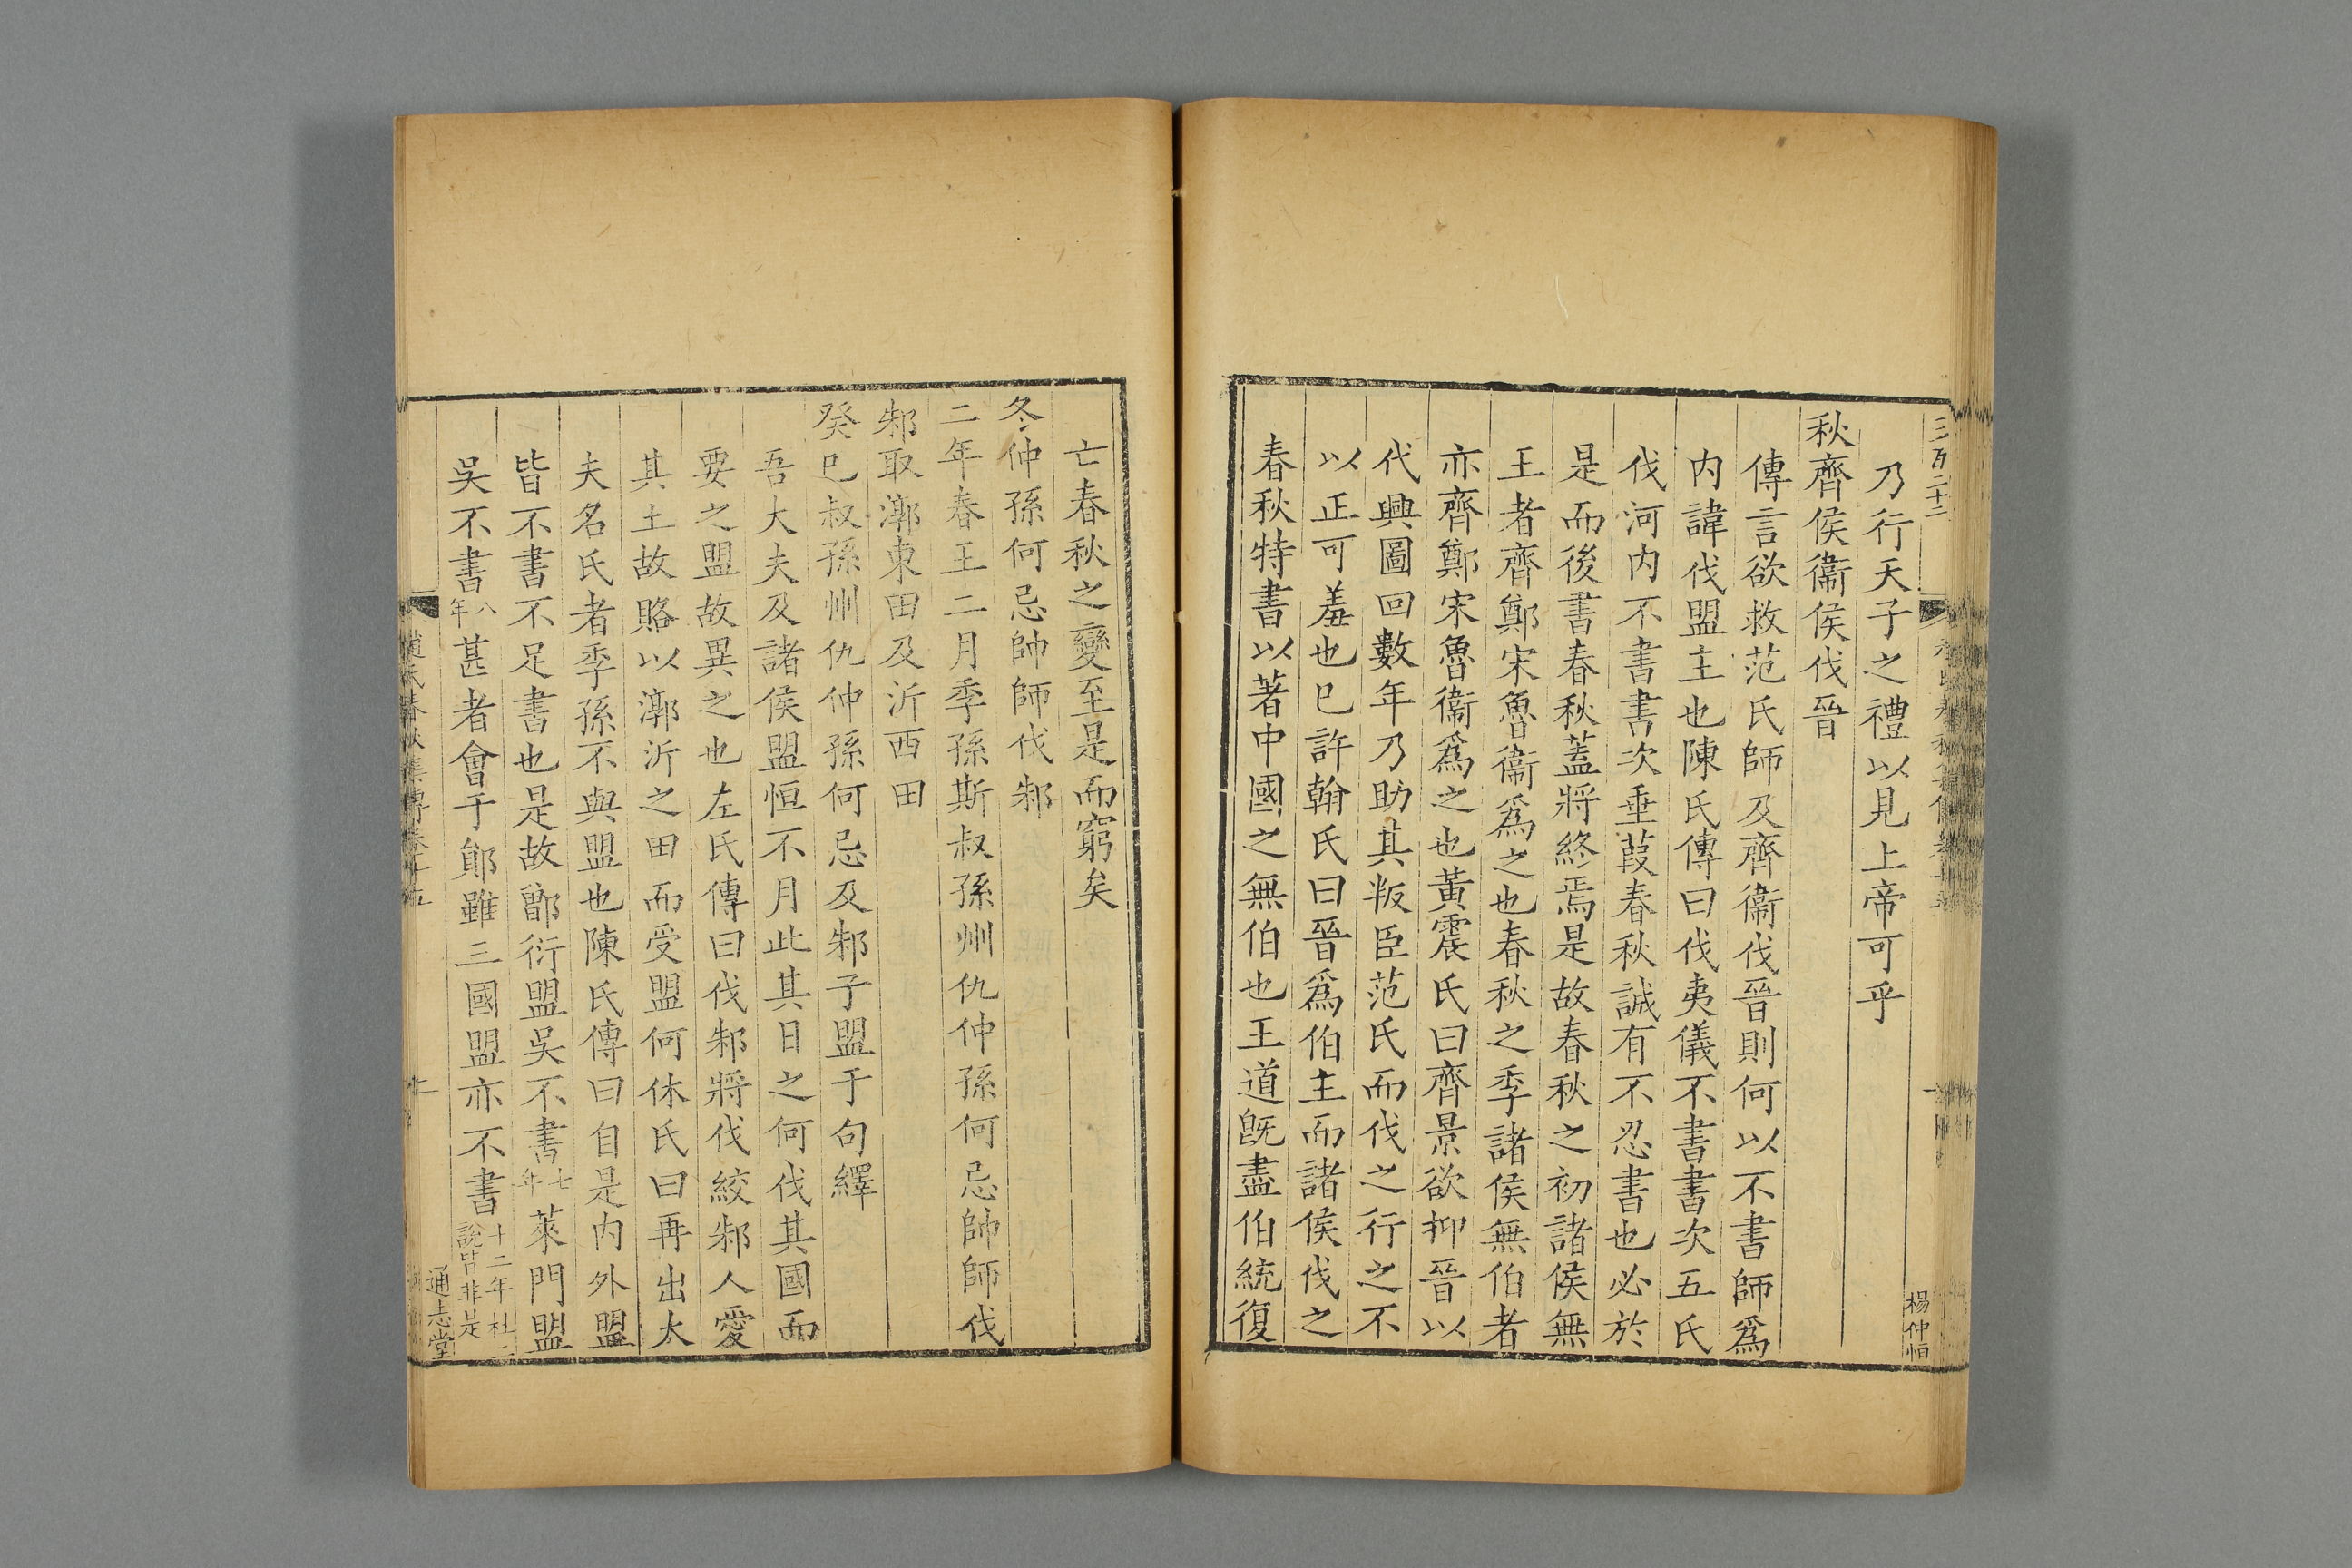 三百二十二
乃行天子之禮以見上帝可乎
秋齊侯衞侯伐晉
傳言欲救范氏師及齊衞伐晉則何以不書師爲
内諱伐盟主也陳氏傳曰伐夷儀不書書次五氏
伐河内不書書次垂葭春秋誠有不忍書也必於
是而後書春秋蓋將終焉是故春秋之初諸侯無
王者齊鄭宋魯衞爲之也春秋之季諸侯無伯者
亦齊鄭宋魯衞爲之也黃震氏曰齊景欲抑晉以
代興圖回數年乃助其叛臣范氏而伐之行之不
以正可羞也巳許翰氏曰晉爲伯主而諸侯伐之
春秋特書以著中國之無伯也王道旣盡伯統復
楊仲恒
亡春秋之變至是而窮矣
冬仲孫何忌帥師伐邾
二年春王二月季孫斯叔孫州仇仲孫何忌帥師伐
邾取漷東田及沂西田
癸巳叔孫州仇仲孫何忌及邾子盟于句繹
吾大夫及諸侯盟恒不月此其日之何伐其國而
要之盟故異之也左氏傳曰伐邾將伐絞邾人愛
其土故賂以漷沂之田而受盟何休氏曰再出大
夫名氏者季孫不與盟也陳氏傳曰自是内外盟
皆不書不足書也是故鄫衍盟吳不書七年萊門盟
吳不書八年甚者會于鄖雖三國盟亦不書十二年杜二說皆非是
趙氏春秋集傳卷十五
通志堂